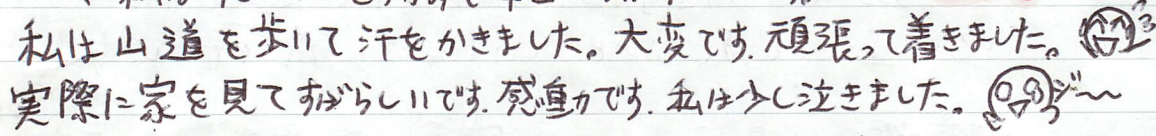 私は山道を歩いて汗をかきました。大変です.頑張って着きました。
実際に家を見てすばらしいです.感動です.私は少し泣きました。ジ〜